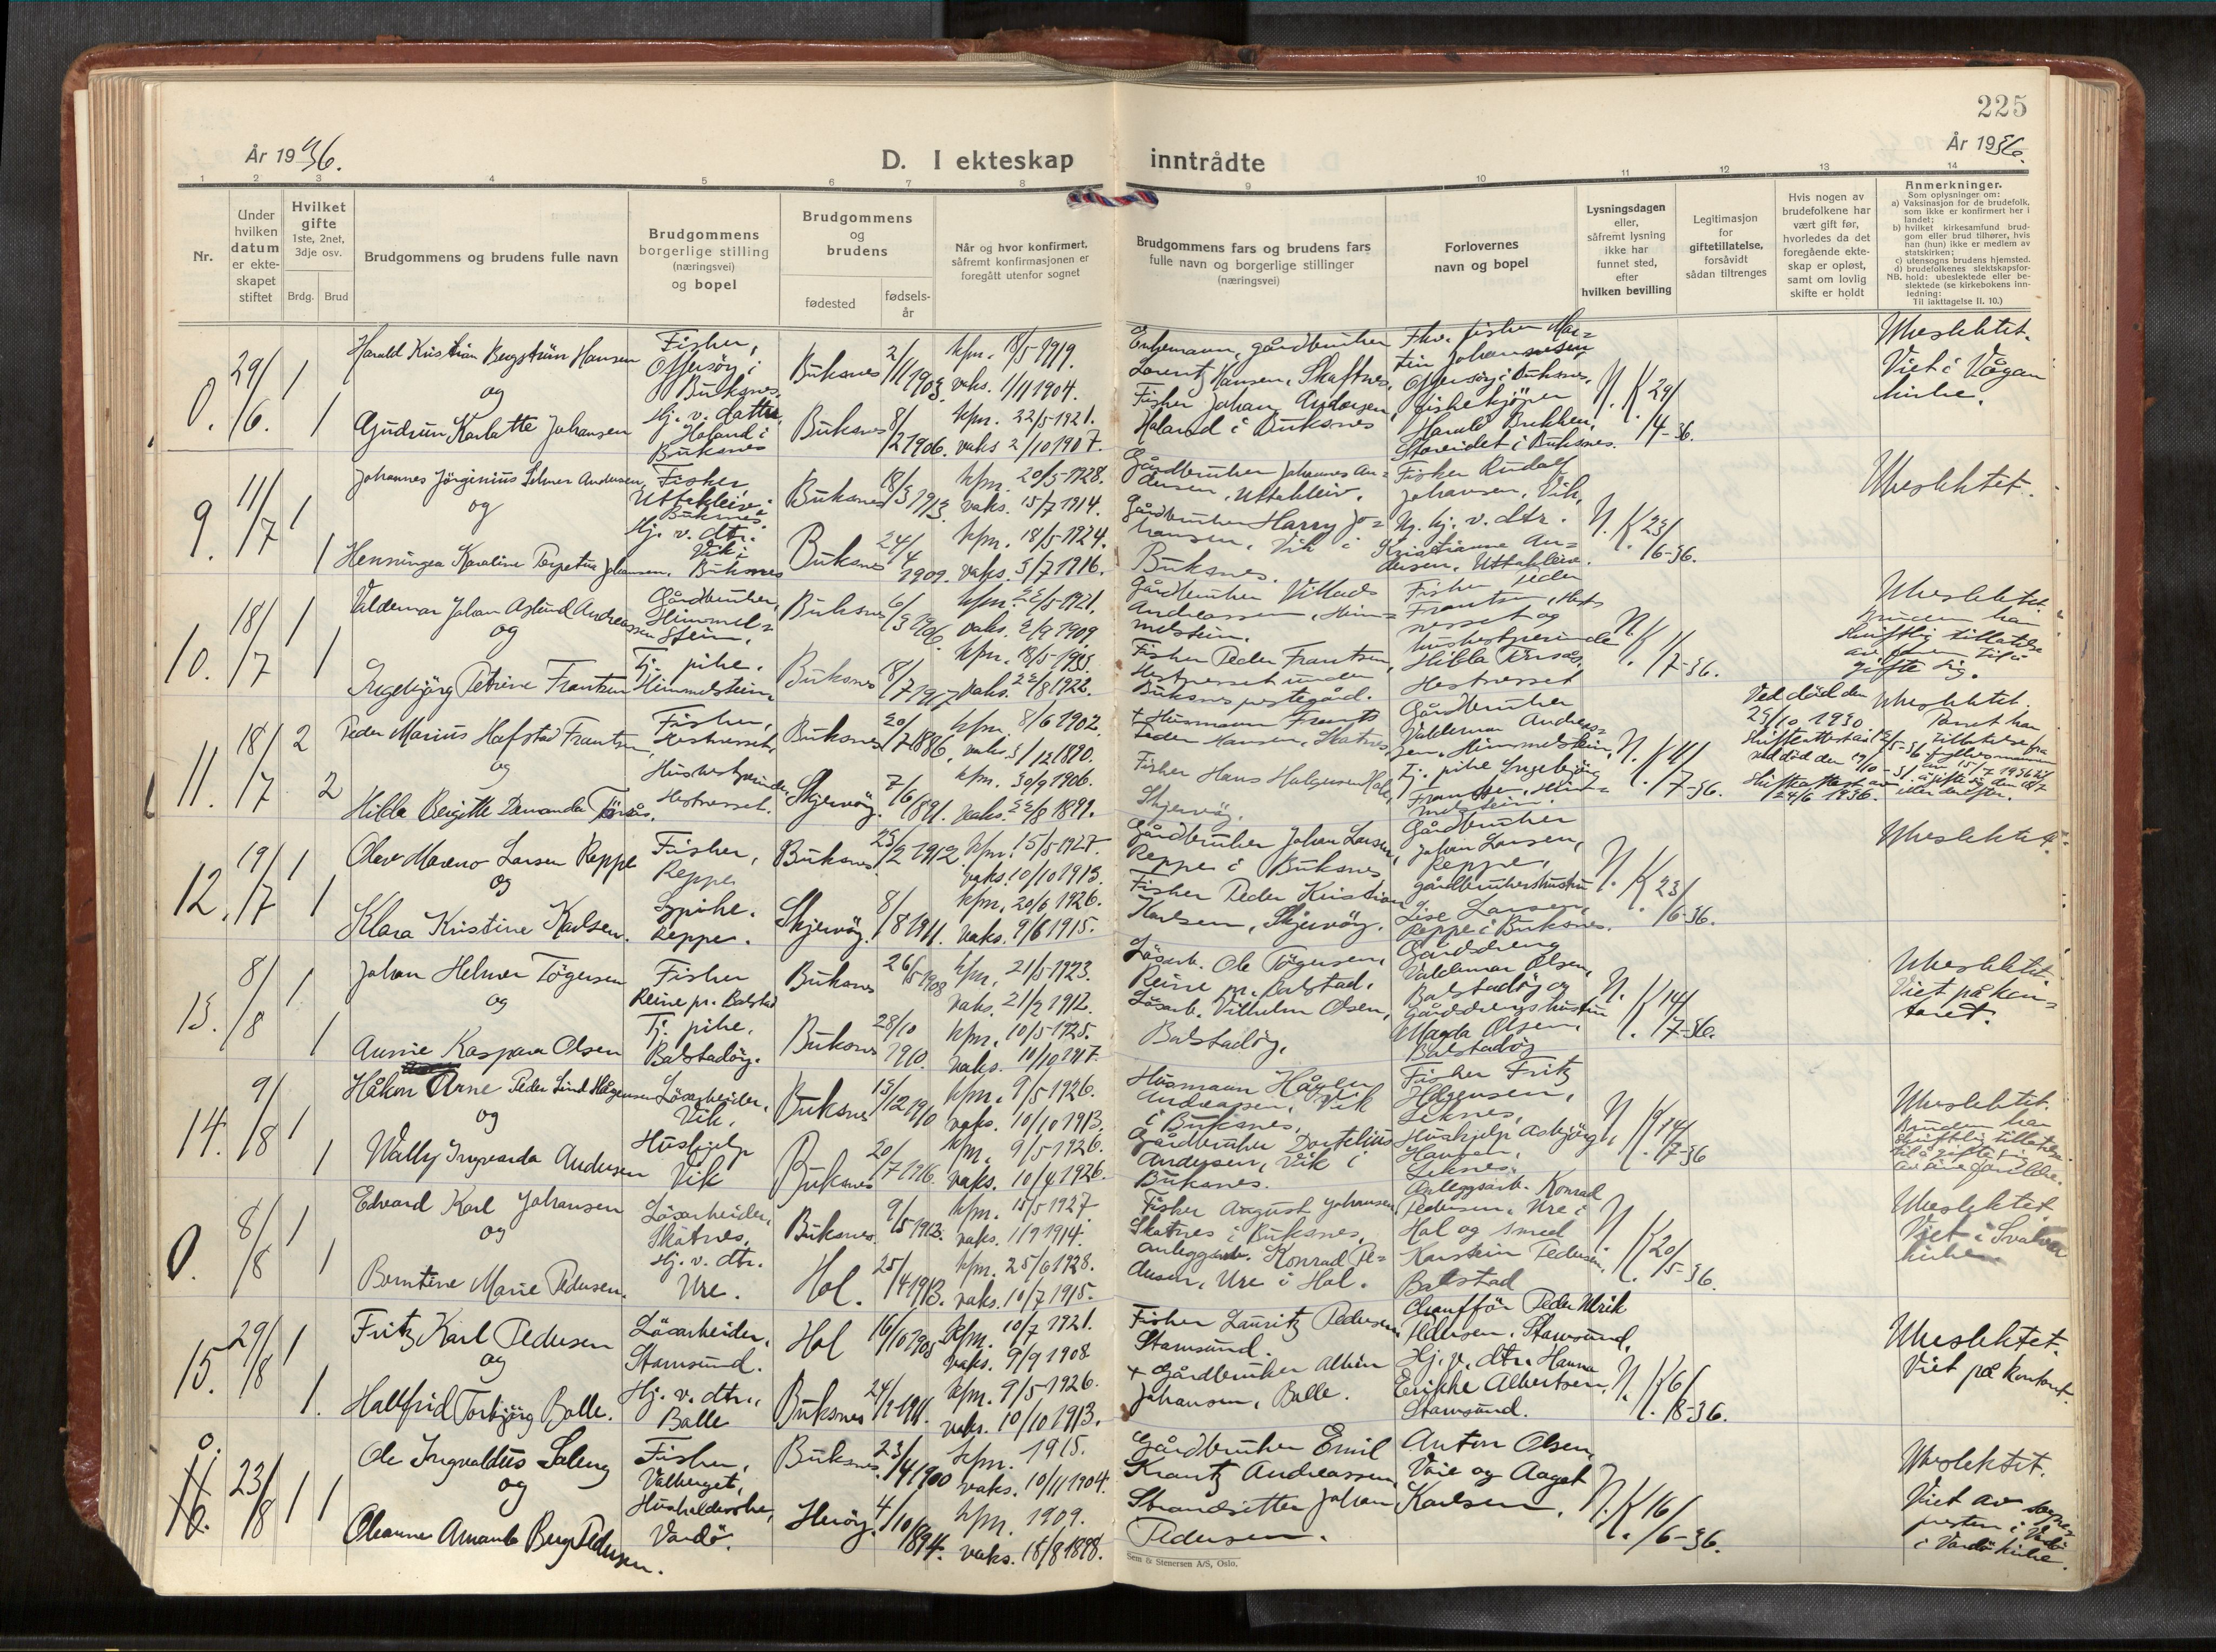 225
År 1936.
År 1936.
D. I ekteskap inntrådte
1 2 3 4 5 6 7 8 9 10 11 12 13 14
Nr.
Under hvilken datum er ekte-skapet stiftet
Hvilket gifte
1ste, 2net, 3dje osv.
Brdg. Brud
Brudgommens og brudens fulle navn
Brudgommens borgerlige stilling (næringsvei) og bopel
Brudgommens og brudens
fødested
fødsels-år
Når og hvor konfirmert, såfremt konfirmasjonen er foregått utenfor sognet
Brudgommens fars og brudens fars fulle navn og borgerlige stillinger (næringsvei)
Forlovernes navn og bopel
Lysningsdagen eller, såfremt lysning ikke har funnet sted, efter hvilken bevilling
Legitimasjon for giftetillatelse, forsåvidt sådan tiltrenges
Hvis nogen av brudefolkene har vært gift før, hvorledes da det foregående ekte-skap er opløst, samt om lovlig skifte er holdt
Anmerkninger.
Som oplysninger om:
a) Vaksinasjon for de brudefolk, som ikke er konfirmert her i landet;
b) hvilket kirkesamfund brud-gom eller brud tilhører, hvis han (hun) ikke er medlem av statskirken;
c) utensogns brudens hjemsted.
d) brudefolkenes slektskapsfor-hold: ubeslektede eller be-slektede (se kirkebokens inn-ledning:
NB.
Til iakttagelse II. 10.)
0. 29/6. 1 Harald Kristian Bergström Hansen
Fisker, Offersöy i Buksnes.
Buksnes 2/11 1903. kfm. 18/5-1919. vaks. 1/11 1904.
Enkemann, gårdbruker Lorentz Hansen, Skaftnes.
Fhv. fisker Martin Johannesen Offersöy i Buksnes.
N. K. 29/4-36.
Ubeslektet. Viet i Vågan kirke.
og
1 Gudrun Karlotte Johansen
Hj. v. datter, Haland i Buksnes
Buksnes 8/2 1906. kfm. 22/5-1921. vaks 2/10 1907.
Fisker Johan Andersen, Haland i Buksnes
fiskekjöper Harald Bukken, Storeidet i Buksnes.
9. 11/7 1 Johannes Jörginius Selmer Andersen,
Fisker Uttakleiv i Buksnes.
Buksnes 18/3 1913. kfm. 20/5-1928. vaks. 15/7 1914.
Gårdbruker Johannes Andersen, Uttakleiv.
Fisker Rudolf Johansen, Vik,
N. K. 23/6-36.
Ubeslektet.
og
1 Henningea Karoline Perpetua Johansen.
Hj. v. dtr. Vik i Buksnes
Buksnes 24/4 1909. kfm. 18/5-1924. vaks. 5/7 1916.
Gårdbruker Harry Johansen, Vik i Buksnes.
Ug. hj. v. dtr. Kristianne Andersen, Uttakleiv.
10. 18/7 1 Valdemar Johan Aslund Andreassen
Gårdbruker, Himmelstein.
Buksnes 6/3 1906. kfm. 22/5-1921. vaks. 2/9 1909.
Gårdbruker Villads Andreassen, Himmelstein.
Fisker Peder Frantsen, Hestnesset og husbestyrerinde Hilda Törsås, Hestnesset
N. K. 1/7-36.
Ubeslektet. Bruden har skriftlig tillatelse av faren til å gifte sig.
og
1 Ingebjörg Petrine Frantsen
Tj. pike. Himmelstein
Buksnes 18/7 1917 kfm. 18/5-1933. vaks. 22/8 1922.
Fisker Peder Frantsen, Hestnesset under Buksnes prestegård.
11. 18/7 2 Peder Marius Hafstad Frantsen
Fisker, Hestnesset.
Buksnes 20/7 1886. kfm. 8/6 1902. vaks. 5/12 1890.
+ Husmann Frants Peder Hansen, Skotnes,
Gårdbruker Valdemar Andreassen, Himmelstein,
N. K. 4/7-36.
Ved död den 25/10 1930. Skifteattest av 12/5-36.
Ubeslektet. Parret har tillatelse fra fylkesmannen av 15/7 1936 til å gifte sig den 18/7 eller derefter.
og
2 Hilda Bergitte Demanda Törsås.
Husbestyrerinde, Hestnesset.
Skjervöy. 7/6 1891. kfm. 30/9 1906. vaks. 22/8 1899.
Fisker Hans Holgersen Hole, Skjervöy.
Tj. pike Ingebjörg Frantsen, Himmelstein.
Ved död den 17/10-31. Skifteattest av 24/6 1936.
12. 19/7 1 Olav Moreno Larsen Reppe
Fisker, Reppe
Buksnes 25/2 1912. kfm. 15/5-1927. vaks. 10/10 1913.
Gårdbruker Johan Larsen, Reppe i Buksnes
Gårdbruker Johan Larsen, Reppe,
N. K. 23/6-36.
Ubeslektet.
og
1 Klara Kristine Karlsen.
Tj. pike. Reppe.
Skjervöy. 8/8 1911. kfm. 20/6 1926. vaks. 9/6 1915.
Fisker Peder Kristian Karlsen, Skjervöy.
gårdbrukerhustru Lise Larsen, Reppe i Buksnes.
13. 8/8 1 Johan Helmer Tögersen
Fisker Reine pr. Balstad
Buksnes 26/5 1908 kfm. 21/5-1923. vaks. 21/2 1912.
Lösarb. Ole Tögersen, Reine pr. Balstad.
Gårddreng Valdemar Olsen, Balstadöy og
N. K. 14/7-36.
Ubeslektet. Viet på kontoret.
og
1 Aunie Kaspara Olsen
Tj. pike, Balstadöy.
Buksnes 28/10 1910. kfm. 10/5-1925. vaks. 10/10 1917.
Lösarb. Vilhelm Olsen, Balstadöy.
Gårddrengshustru Magda Olsen, Balstadöy
14. 9/8 1 Håkon Arne Peder Lind Hågensen
Lösarbeider, Vik.
Buksnes 15/12 1910 kfm. 9/5 1926. vaks. 10/10 1913.
Husmann Hågen Andreassen, Vik i Buksnes,
Fisker Fritz Hågensen, Leknes,
N. K. 14/7-36
Ubeslektet. Bruden har skriftlig tillatelse til å gifte sig av sine foreldre.
og
1 Wally Ingvarda Andersen
Hushjelp Vik
Buksnes 20/7 1916. kfm. 9/5 1926. vaks. 10/4 1926.
Gårdbruker Dortelius Andersen, Vik i Buksnes.
Hushjelp Asbjörg Haugen, Leknes.
0. 8/8 1 Edvard Karl Johansen
Lösarbeider, Skotnes.
Buksnes. 9/5 1913. kfm. 15/5 1927. vaks. 1/9 1914.
Fisker August Johansen Skotnes i Buksnes,
Anleggsarb. Konrad Pedersen, Ure i Hol og smed
N. K. 20/5-36.
Ubeslektet Viet i Svolvær kirke
og
1 Berntine Marie Pedersen.
Hj. v. dtr. Ure.
Hol. 25/4 1913. kfm. 25/6 1928. vaks. 10/7 1915.
Anleggsarb. Konrad Pedersen, Ure i Hol.
Karstein Pedersen, Balstad
15. 29/8 1 Fritz Karl Pedersen
Lösarbeider, Stamsund.
Hol 16/6 1908 kfm. 10/7 1921. vaks. 9/9 1908
Fisker Lauritz Pedersen Stamsund.
Chaufför Peder Ulrik Pedersen, Stamsund.
N. K. 6/8-36.
Ubeslektet. Viet på kontoret.
og
1. Hallfrid Torbjörg Balle.
Hj. v. dtr., Balle
Buksnes 24/2 1911. kfm. 9/5 1926. vaks. 10/10 1913.
+ Gårdbruker Albin Johansen, Balle.
Hj. v. dtr. Hanna Erikke Albertsen, Stamsund.
0. 16. 23/8 1 1 Ole Ingvaldus Soleng
Fisker, Valberget,
Buksnes. 23/4 1900 kfm. 1915. vaks. 10/11 1904.
Gårdbruker Emil Krantz Andreassen
Anton Olsen, Voie og Aagot Karlsen.
N. K. 16/6-36.
Ubeslektet. Viet av sognepresten i Vardö i Vardö kirke.
og
Oleanna Amanda Berg Pedersen.
Husholderske, Vardö.
Heröy. 4/10 1894. kfm. 1909. vaks. 18/8 1898.
Strandsitter Johan Pedersen.
Sem & Stenersen A/S, Oslo.